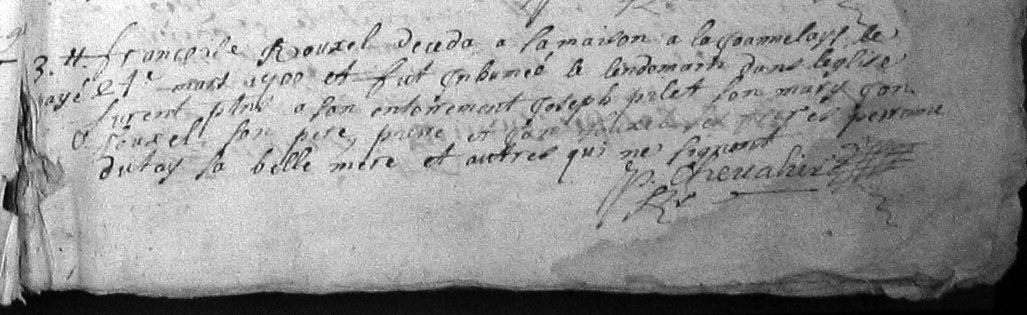 3. ++ françoise Rouxel deceda a sa maison a la Joannelays le
payé 1er mars 1700 et fut inhumeé le lendemain dans leglise
furent pnts a son enterrement Joseph pilet son mary Jan
Rouxel son pere, pierre et Jan Rouxel ses freres perrinne
dutay sa belle mere et autres qui ne signent
P. Chevalier